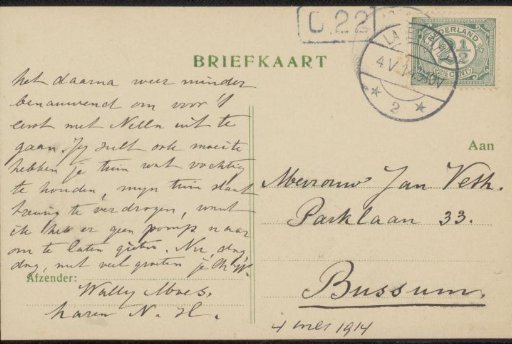 C.22
LAREN
4.V.14
2
NEDERLAND
2½
BRIEFKAART
het daarna weer minder
benauwend om voor 't
eerst met Nella uit te
gaan. Jij zult ook moeite
hebben je tuin wat vochtig
te houden, mijn tuin staat
te verdrogen, want
ik heb er geen pomp naar
om te laten gieten. Nu, dag
dag, met veel groeten je
Afzender:
Wally Moes.
Laren N. H.
Aan
Mevrouw Jan Veth.
Parklaan 33.
Bussum.
4 mei 1914